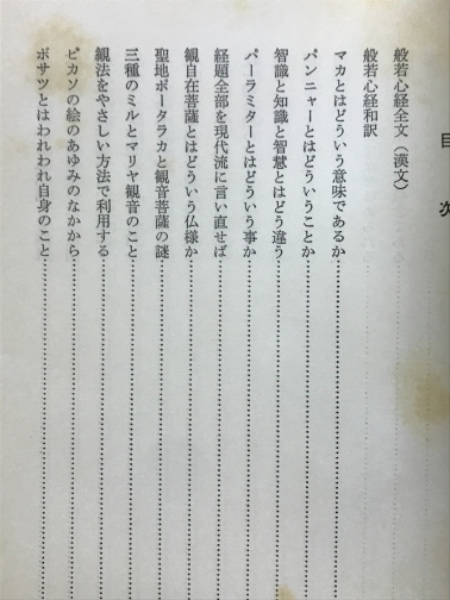 目次
般若心経全文（漢文）
般若心経和訳
マカとはどういう意味であるか
パンニャーとはどういうことか
智識と知識と智慧とはどう違う
パーラミターとはどういう事か
経題全部を現代流に言い直せば
観自在菩薩とはどういう仏様か
聖地ポータラカと観音菩薩の謎
三種のミルとマリヤ観音のこと
観法をやさしい方法で利用する
ピカソの絵のあゆみのなかから
ボサツとはわれわれ自身のこと